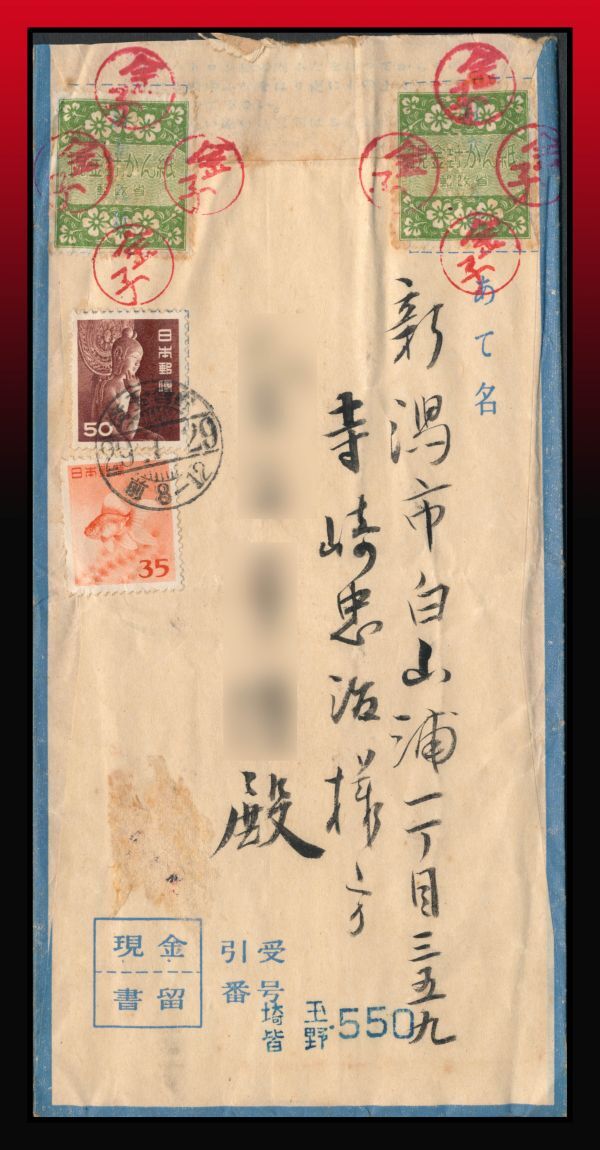 金子
金子
金子
金子
現金封かん紙
郵政省
金子
金子
金子
金子
現金封かん紙
郵政省
あて名
新潟市白山浦一丁目三五九
寺崎忠治様方
殿
日本郵便
50
29
前8-12
日本郵便
35
現金
書留
受
引
番号
埼
玉
皆
野
550